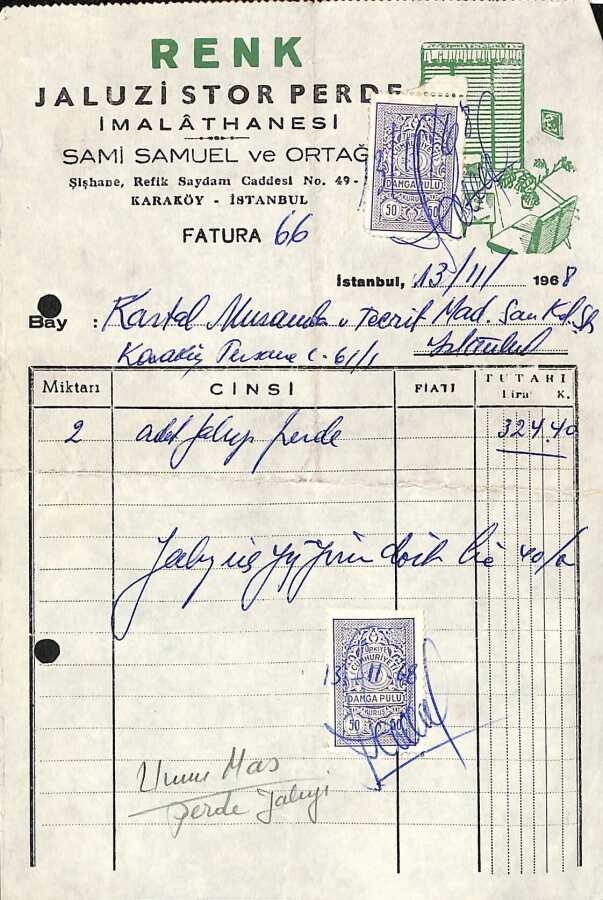 RENK
JALUZİ STOR PERDE
İMALÂTHANESİ
SAMİ SAMUEL ve ORTAĞ
Şişhane, Refik Saydam Caddesi No. 49-
KARAKÖY - İSTANBUL
FATURA 66
İstanbul, 13/11/ 1968
Bay : Kartal Musamba v Tecrit Mad. San Kol. Şti
Karaköy Perşembe C. 61/1 İstanbul
Miktarı CİNSİ FİATI TUTARI
Lira K.
2 adet Jaluzi perde 324.40
Yalnız üç yüz yirmi dört lira 40/
TÜRKİYE
CUMHURİYETİ
DAMGA PULU
KURUŞ
50 50
13-11-68
Umum Mas
Perde Jaluzi
DAMGA PULU
KURUŞ
50 50